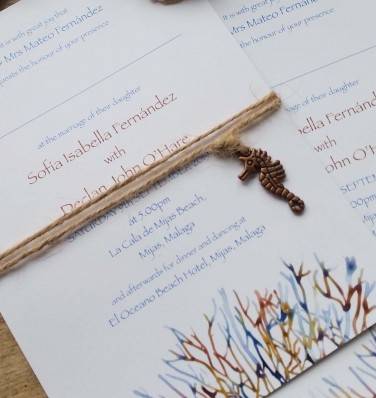 it is with great joy that
Mrs Mateo Fernández
the honour of your presence
at the marriage of their daughter
Sofía Isabella Fernández
with
Declan John O'Hare
SATURDAY
at 5.00pm
La Cala de Mijas Beach,
Mijas, Malaga
and afterwards for dinner and dancing at
El Oceano Beach Hotel, Mijas, Malaga
is with great joy
Mrs Mateo Fernández
honour of your presence
marriage of their daughter
bella Fernández
with
ohn O'Ha
SEPTEM
00pm
Mijas
Mal